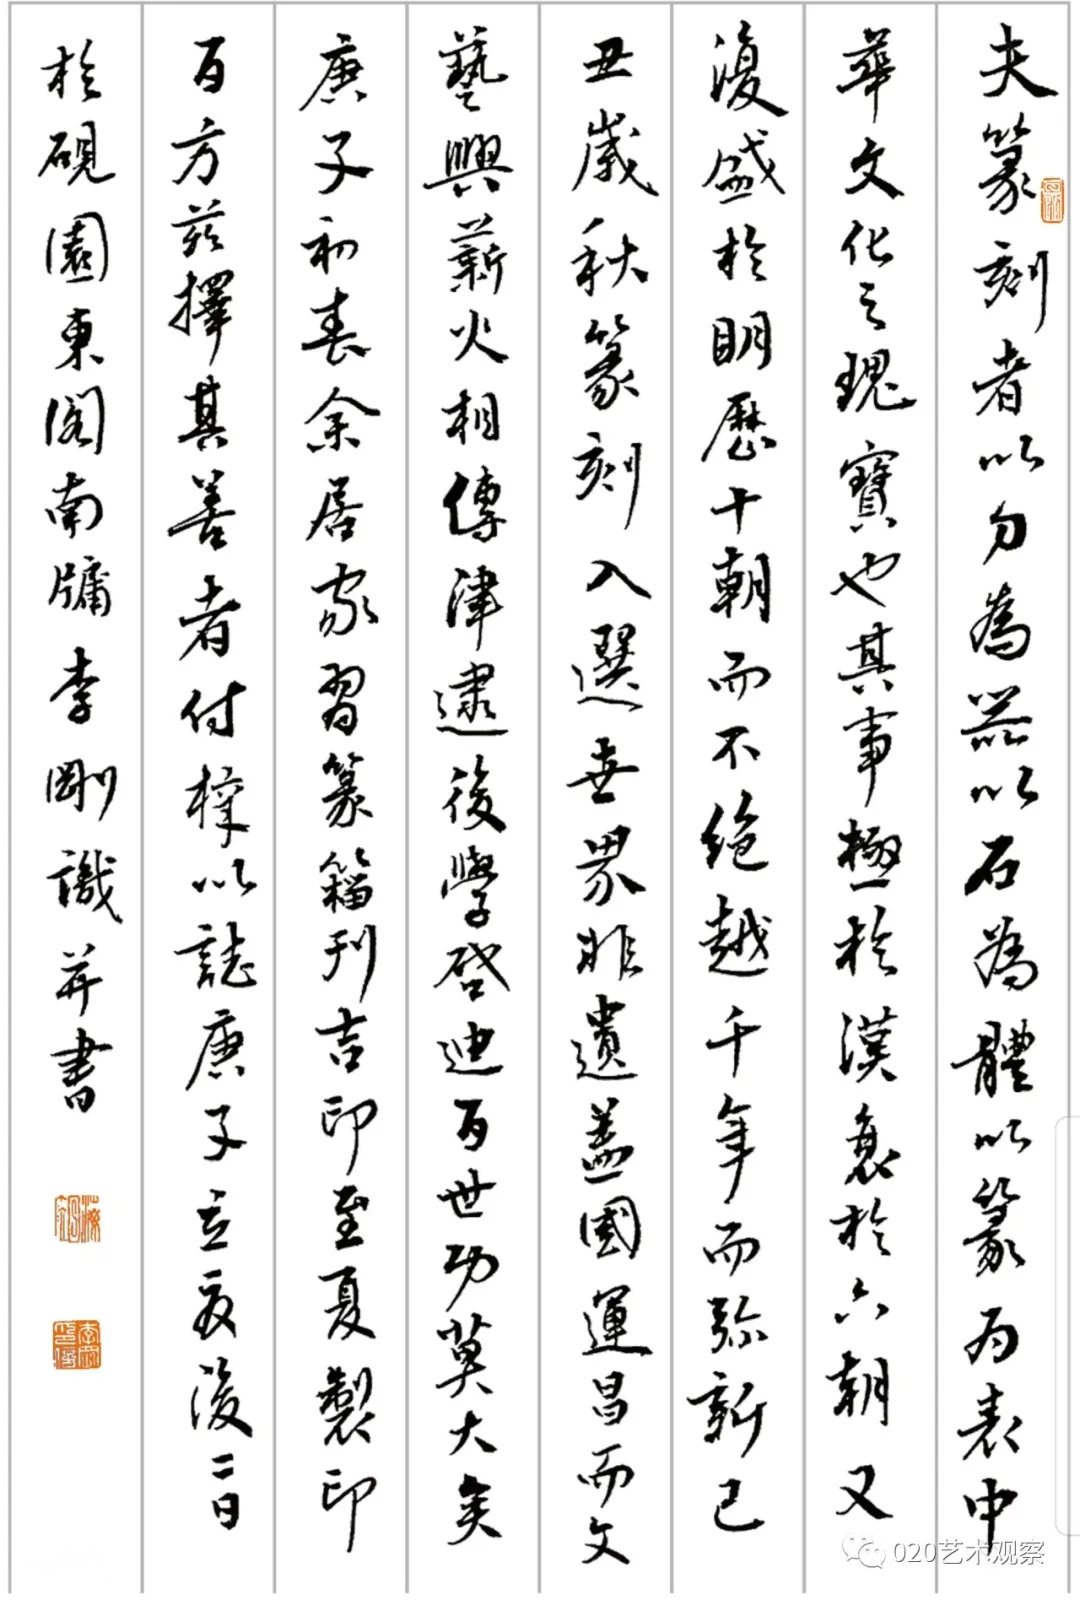 夫篆刻者以刀為器以石為體以篆為表中
華文化之瑰寶也其事極於漢衰於六朝又
復盛於明歷十朝而不絶越千年而弥新己
丑歲秋篆刻入選世界非遺蓋國運昌而文
藝興薪火相傳津逮後學啓迪百世功莫大矣
庚子初春余居家習篆籀刊吉印至夏製印
百方茲擇其善者付梓以誌庚子立夏後二日
於硯園東閣南牖李剛識并書
020艺术观察